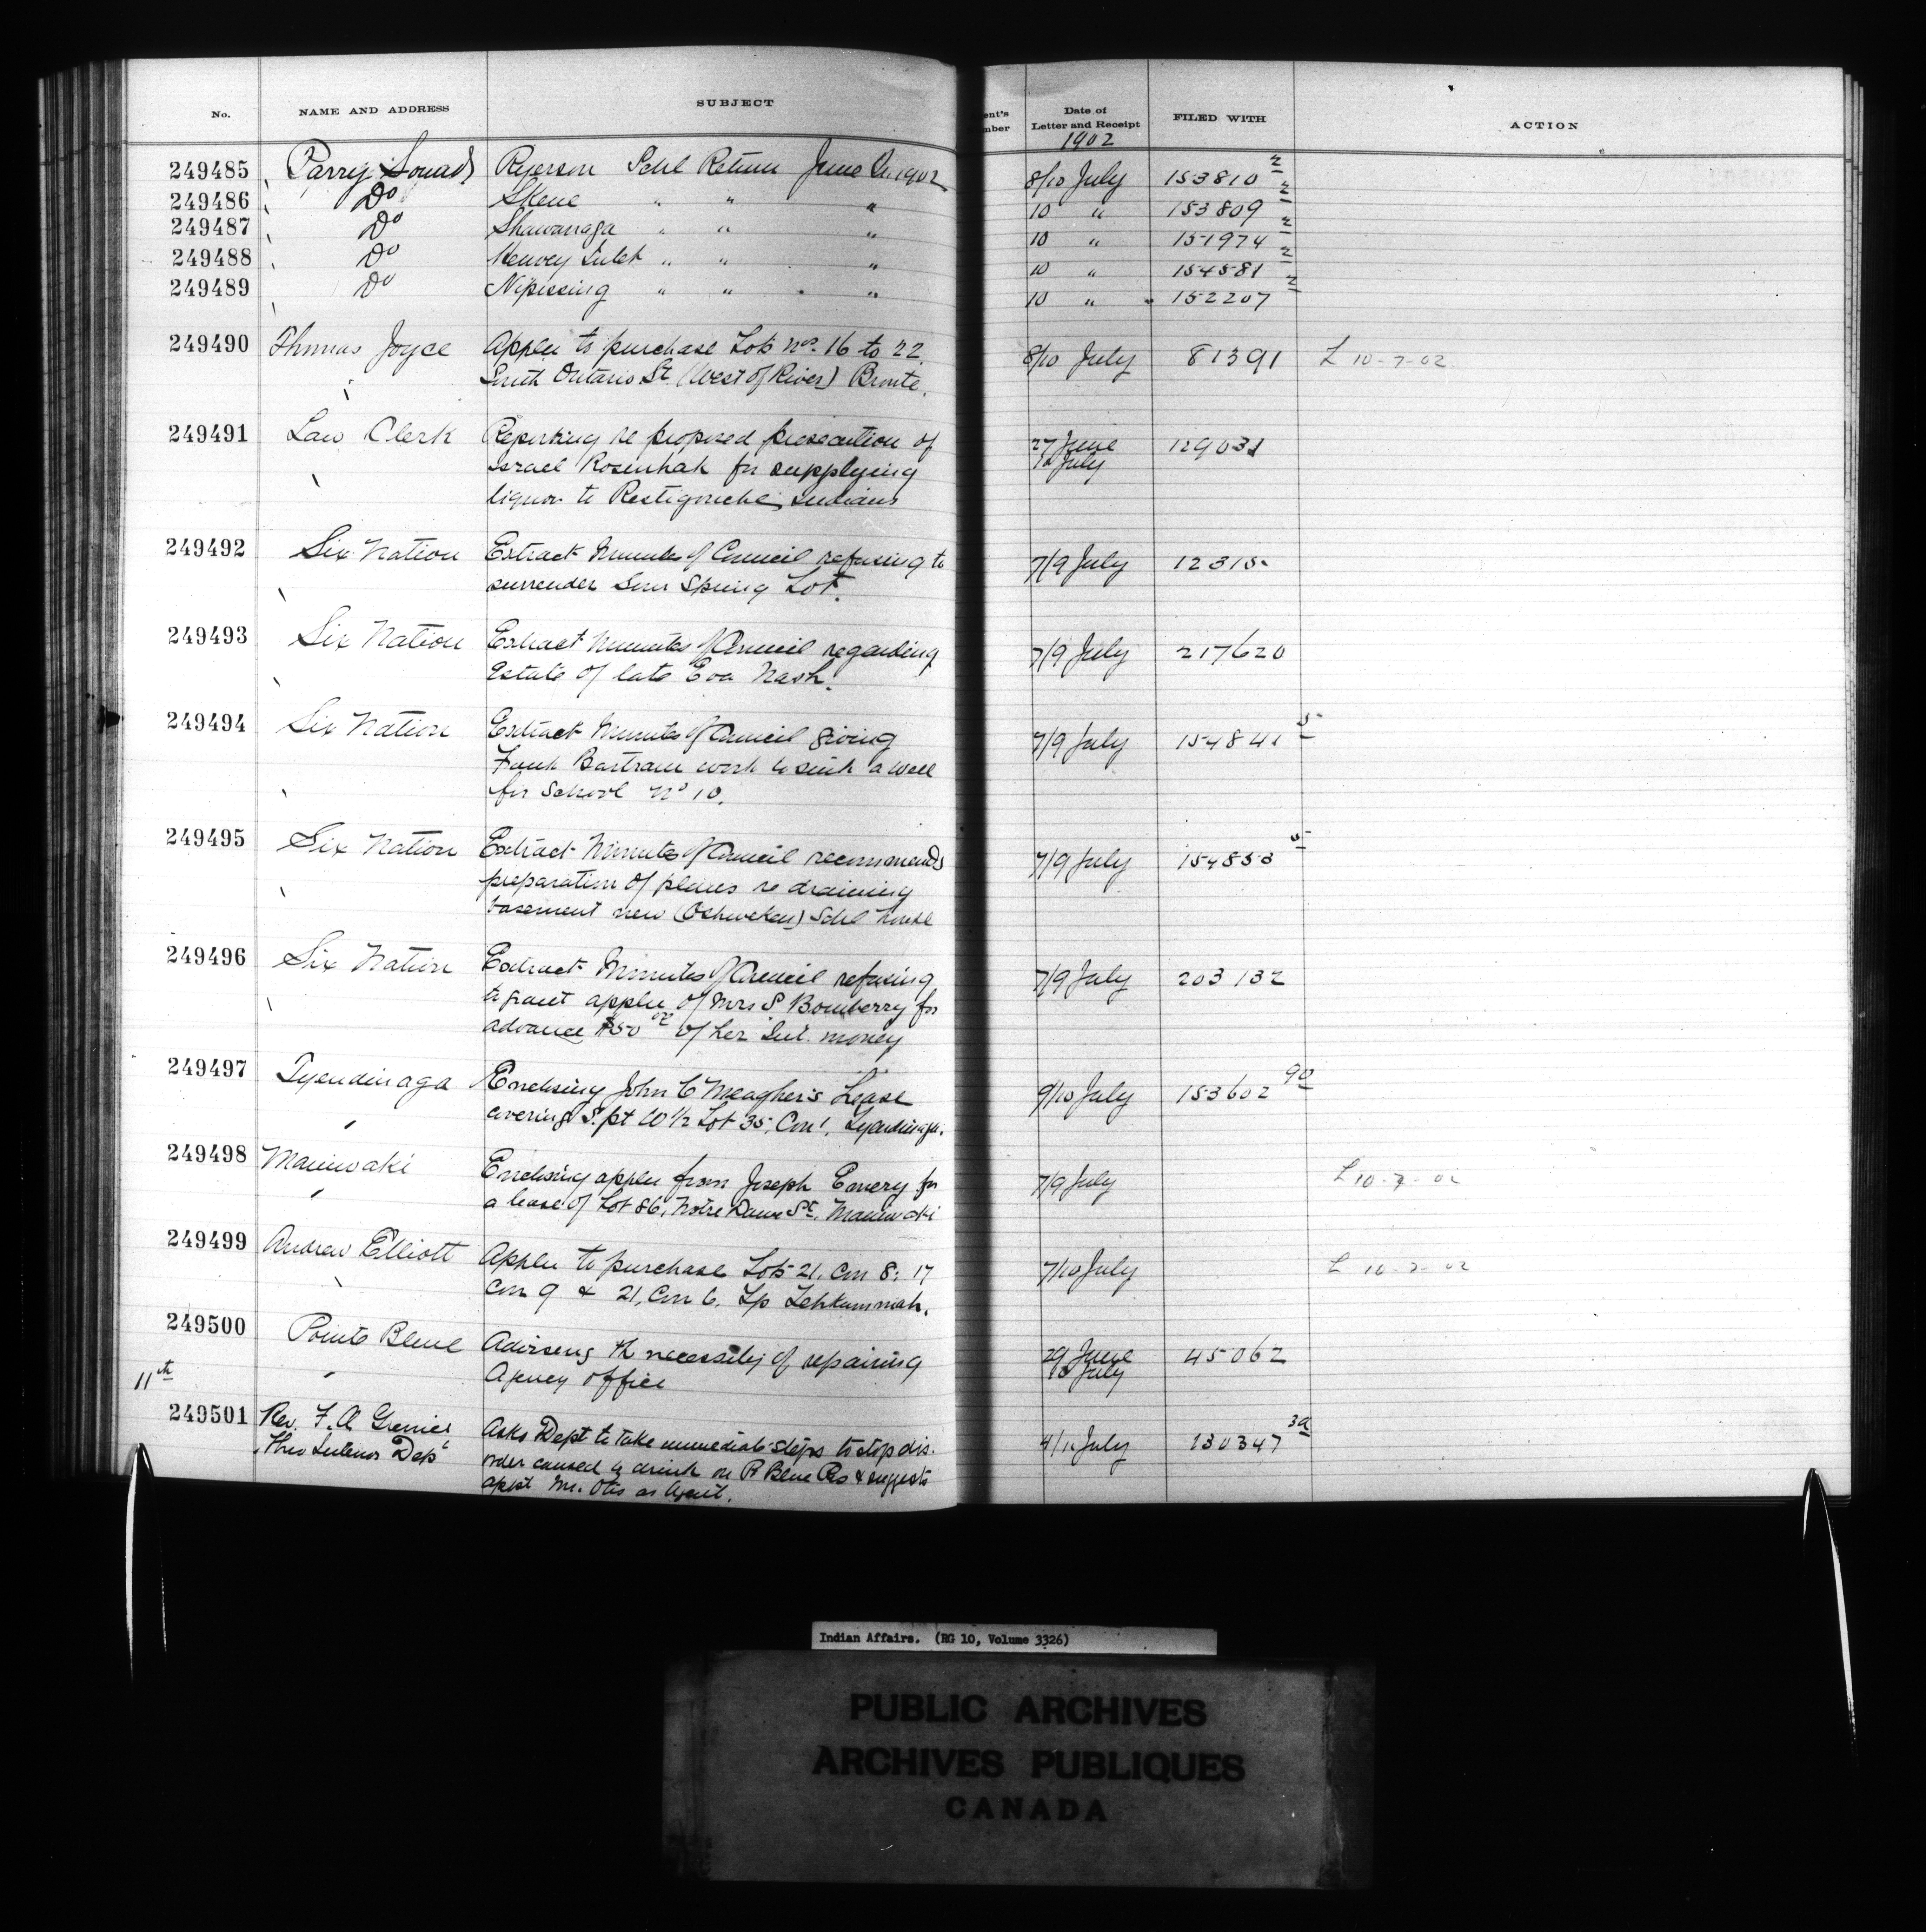 No. NAME AND ADDRESS SUBJECT ent's mber Date of Letter and Receipt FILED WITH ACTION
1902
249485 Parry Sound Ryerson Schl Return June Qr. 1902 8/10 July 153810 2
249486 Do Skene " " " 10 " 153809 2
249487 Do Shawanaga " " " 10 " 151974 2
249488 Do Henvey Inlet " " " 10 " 154581 2
249489 Do Nipissing " " " 10 " 152207 2
249490 Thomas Joyce Applcn to purchase Lots Nos. 16 to 22 8/10 July 81391 L 10-7-02
South Ontario St. (West of River) Bronte.
249491 Law Clerk Reporting re proposed prosecution of 27 June 129031
Israel Rosenhak for supplying 10 July
liquor to Restigouche Indians
249492 Six Nation Extract Minutes of Council refusing to 7/9 July 12315
surrender Sour Spring Lot.
249493 Six Nation Extract Minutes of Council regarding 7/9 July 217620
Estate of late Eva Nash.
249494 Six Nation Extract Minutes of Council giving 7/9 July 154841 5
Frank Bartram work to sink a well
for School No 10.
249495 Six Nation Extract Minutes of Council recommends 7/9 July 154853 5
preparation of plans re draining
basement new (Oshweken) Schl house
249496 Six Nation Extract Minutes of Council refusing 7/9 July 203132
to grant applcn of Mrs S Bomberry for
advance $50 00 of her Int. money
249497 Tyendinaga Enclosing John C Meagher's Lease 9/10 July 153602 90
covering S. pt W 1/2 Lot 35, Con 1, Tyendinaga.
249498 Maniwaki Enclosing applcn from Joseph Emery for 7/9 July L 10-7-02
a lease of Lot 86, Notre Dame St. Maniwaki
249499 Andrew Elliott Applcn to purchase Lots 21, Con 8; 17 7/10 July L 10-7-02
Con 9 & 21, Con 6, Tp Tehkummah.
249500 Pointe Bleue Advising th necessity of repairing 29 June 45062
Agency office 10 July
11th
249501 Rev. F. A. Asks Dept to take immediate steps to stop dis- 9/11 July 130347 3a
Thro Dept order caused by drink on P. Bleue Rs & suggests
appt Mr. Otis as Agent.
Indian Affairs. (RG 10, Volume 3326)
PUBLIC ARCHIVES
ARCHIVES PUBLIQUES
CANADA